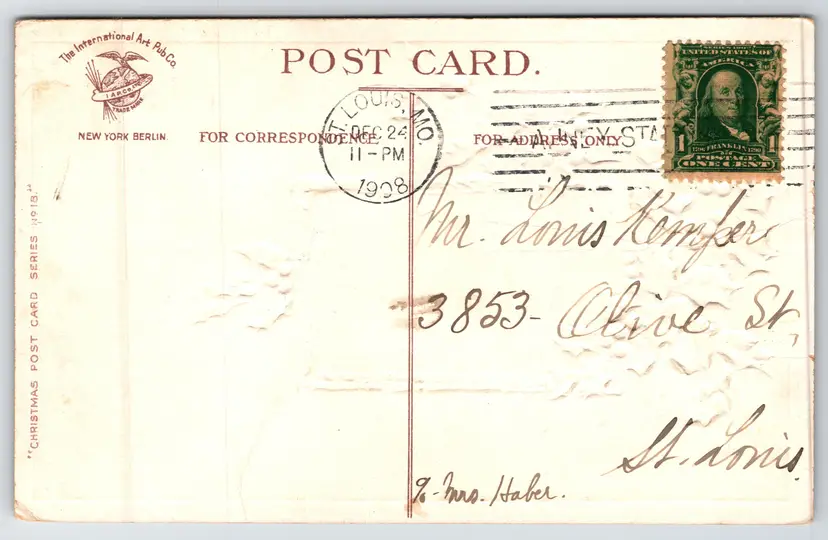 The International Art Pub Co.
I.A.P.Co.
TRADE MARK
NEW YORK BERLIN.
POST CARD.
FOR CORRESPONDENCE
FOR ADDRESS ONLY
ST. LOUIS, MO.
DEC 24
11-PM
1908
SERIES 1902
UNITED STATES OF
AMERICA
1 1
FRANKLIN
POSTAGE
ONE CENT
Mr. Louis Kemper
3853- Olive St,
St. Louis.
%- Mrs. Haber.
"CHRISTMAS POST CARD SERIES